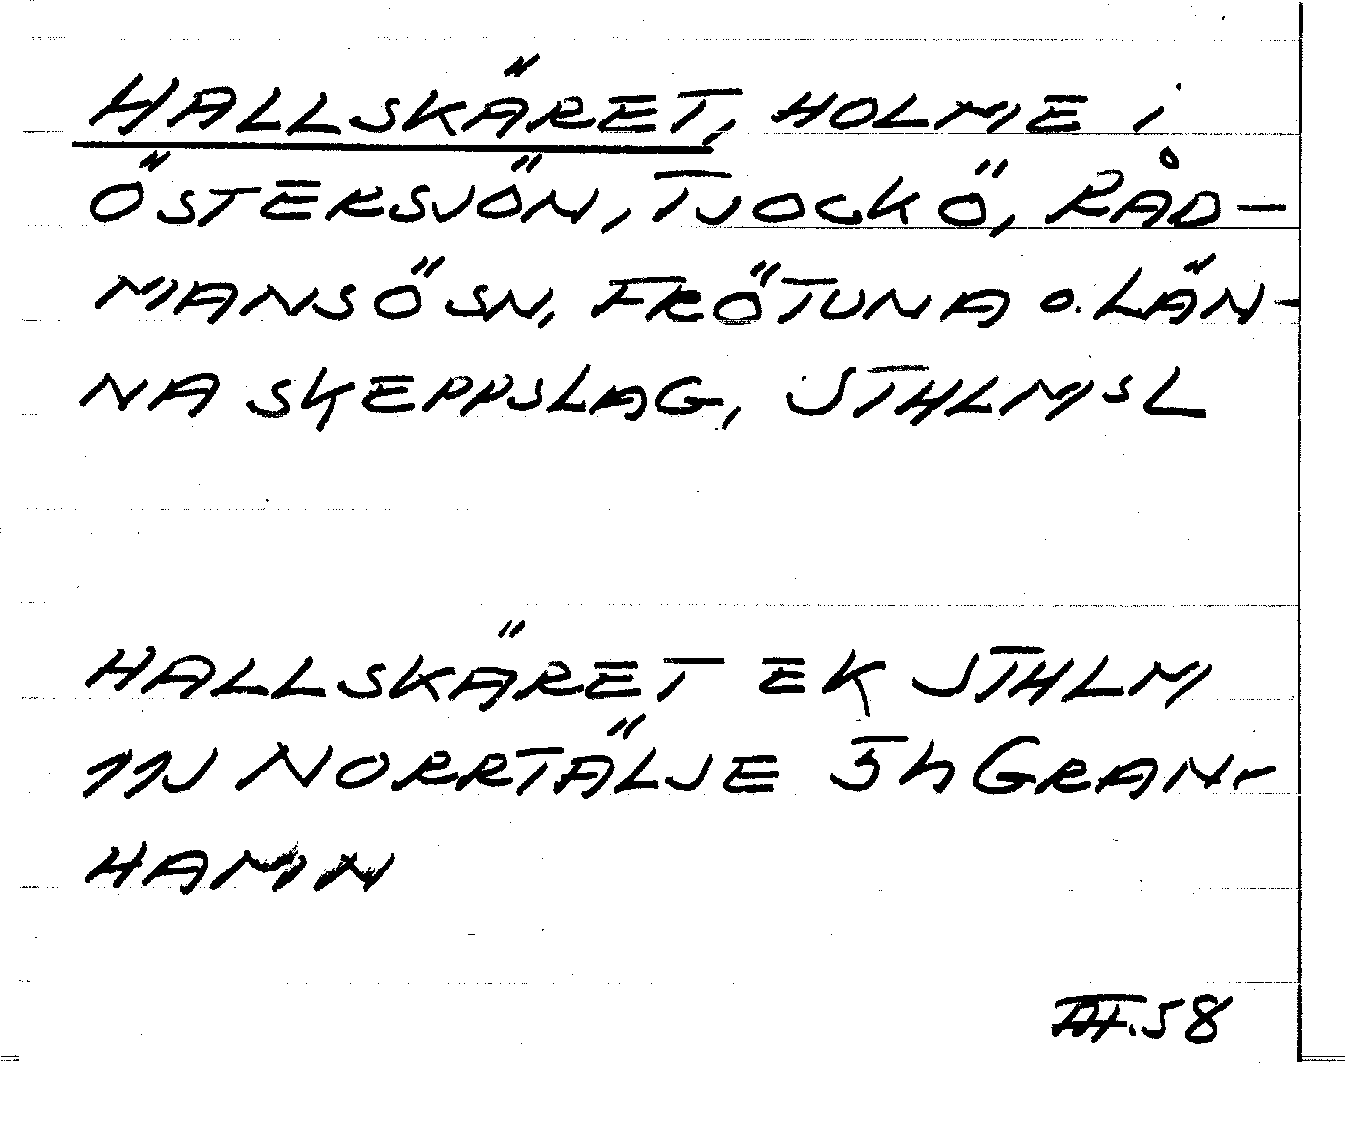 HALLSKÄRET, HOLME i
ÖSTERSJÖN, TJOCKÖ, RÅD-
MANSÖ SN, FRÖTUNA o. LÄN-
NA SKEPPSLAG, STHLMSL
HALLSKÄRET EK STHLM
11J NORRTÄLJE 5h GRAN-
HAMN
58